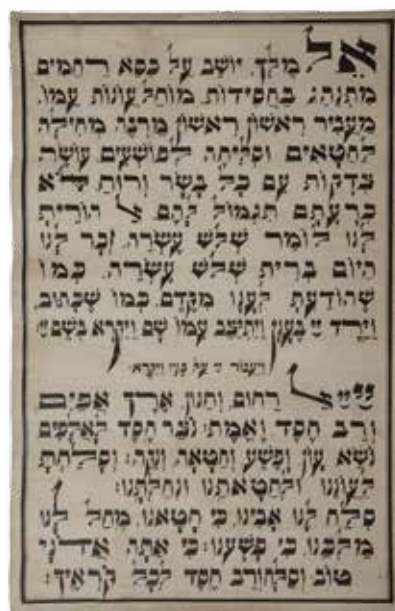 אל מלך יושב על כסא רחמים
מתנהג בחסידות מוחל עונות עמו
מעביר ראשון ראשון מרבה מחילה
לחטאים וסליחה לפושעים עושה
צדקות עם כל בשר ורוח לא
כרעתם תגמול להם אל הורית
לנו לומר שלש עשרה זכר לנו
היום ברית שלש עשרה כמו
שהודעת לענו מקדם כמו שכתוב
וירד יי בענן ויתיצב עמו שם ויקרא בשם יי
ויעבור יי על פניו ויקרא׃
יי יי אל רחום וחנון ארך אפים
ורב חסד ואמת׃ נצר חסד לאלפים
נשא עון ופשע וחטאה ונקה׃ וסלחת
לעוננו ולחטאתנו ונחלתנו׃
סלח לנו אבינו כי חטאנו מחל לנו
מלכנו כי פשענו׃ כי אתה אדני
טוב וסלח ורב חסד לכל קראיך׃